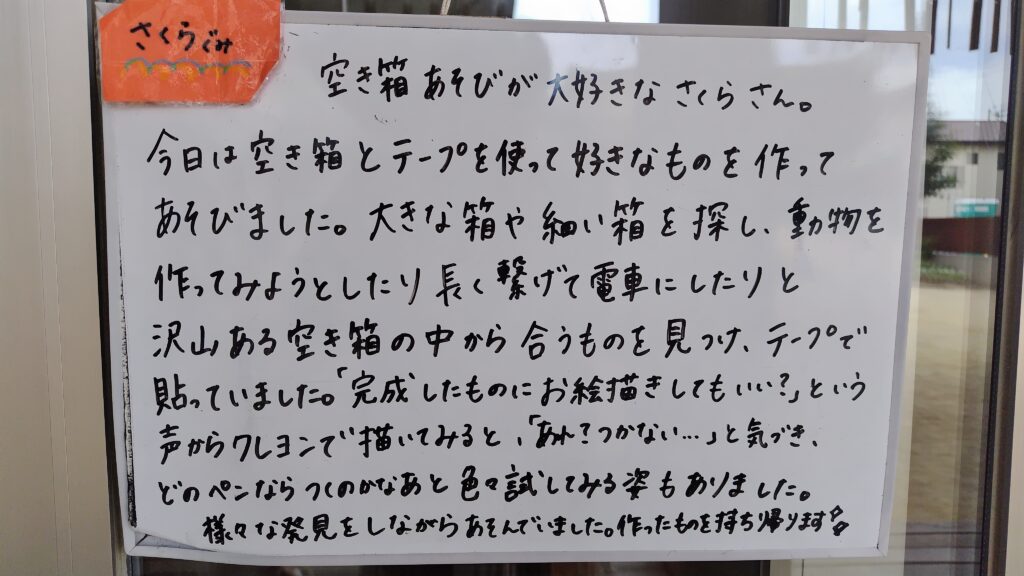 さくらぐみ
空き箱あそびが大好きなさくらさん。
今日は空き箱とテープを使って好きなものを作って
あそびました。大きな箱や細い箱を探し、動物を
作ってみようとしたり長く繋げて電車にしたりと
沢山ある空き箱の中から合うものを見つけ、テープで
貼っていました。「完成したものにお絵描きしてもいい?」という
声からクレヨンで描いてみると、「あれ?つかない…」と気づき、
どのペンならつくのかなあと色々試してみる姿もありました。
様々な発見をしながらあそんでいました。作ったものを持ち帰ります